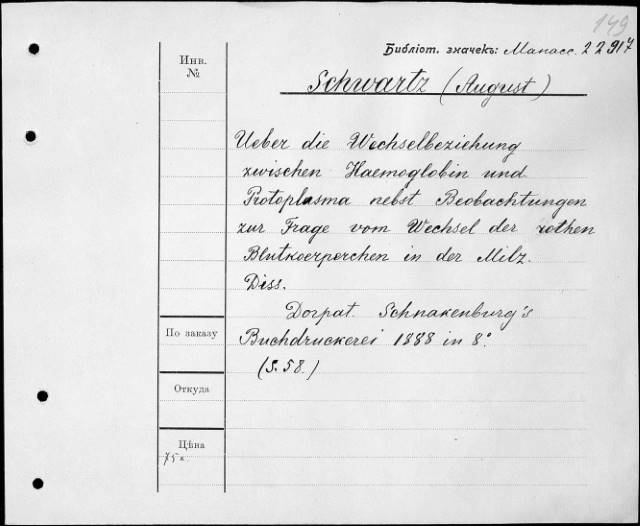 149
Библіот. значекъ: Манасс. 2291⁷
Инв.
№
Schwartz (August)
Ueber die Wechselbeziehung
zwischen Haemoglobin und
Protoplasma nebst Beobachtungen
zur Frage vom Wechsel der rothen
Blutkoerperchen in der Milz.
Diss.
Dorpat. Schnakenburg's
Buchdruckerei 1888 in 8°.
(S. 58.)
По заказу
Откуда
Цѣна
75к